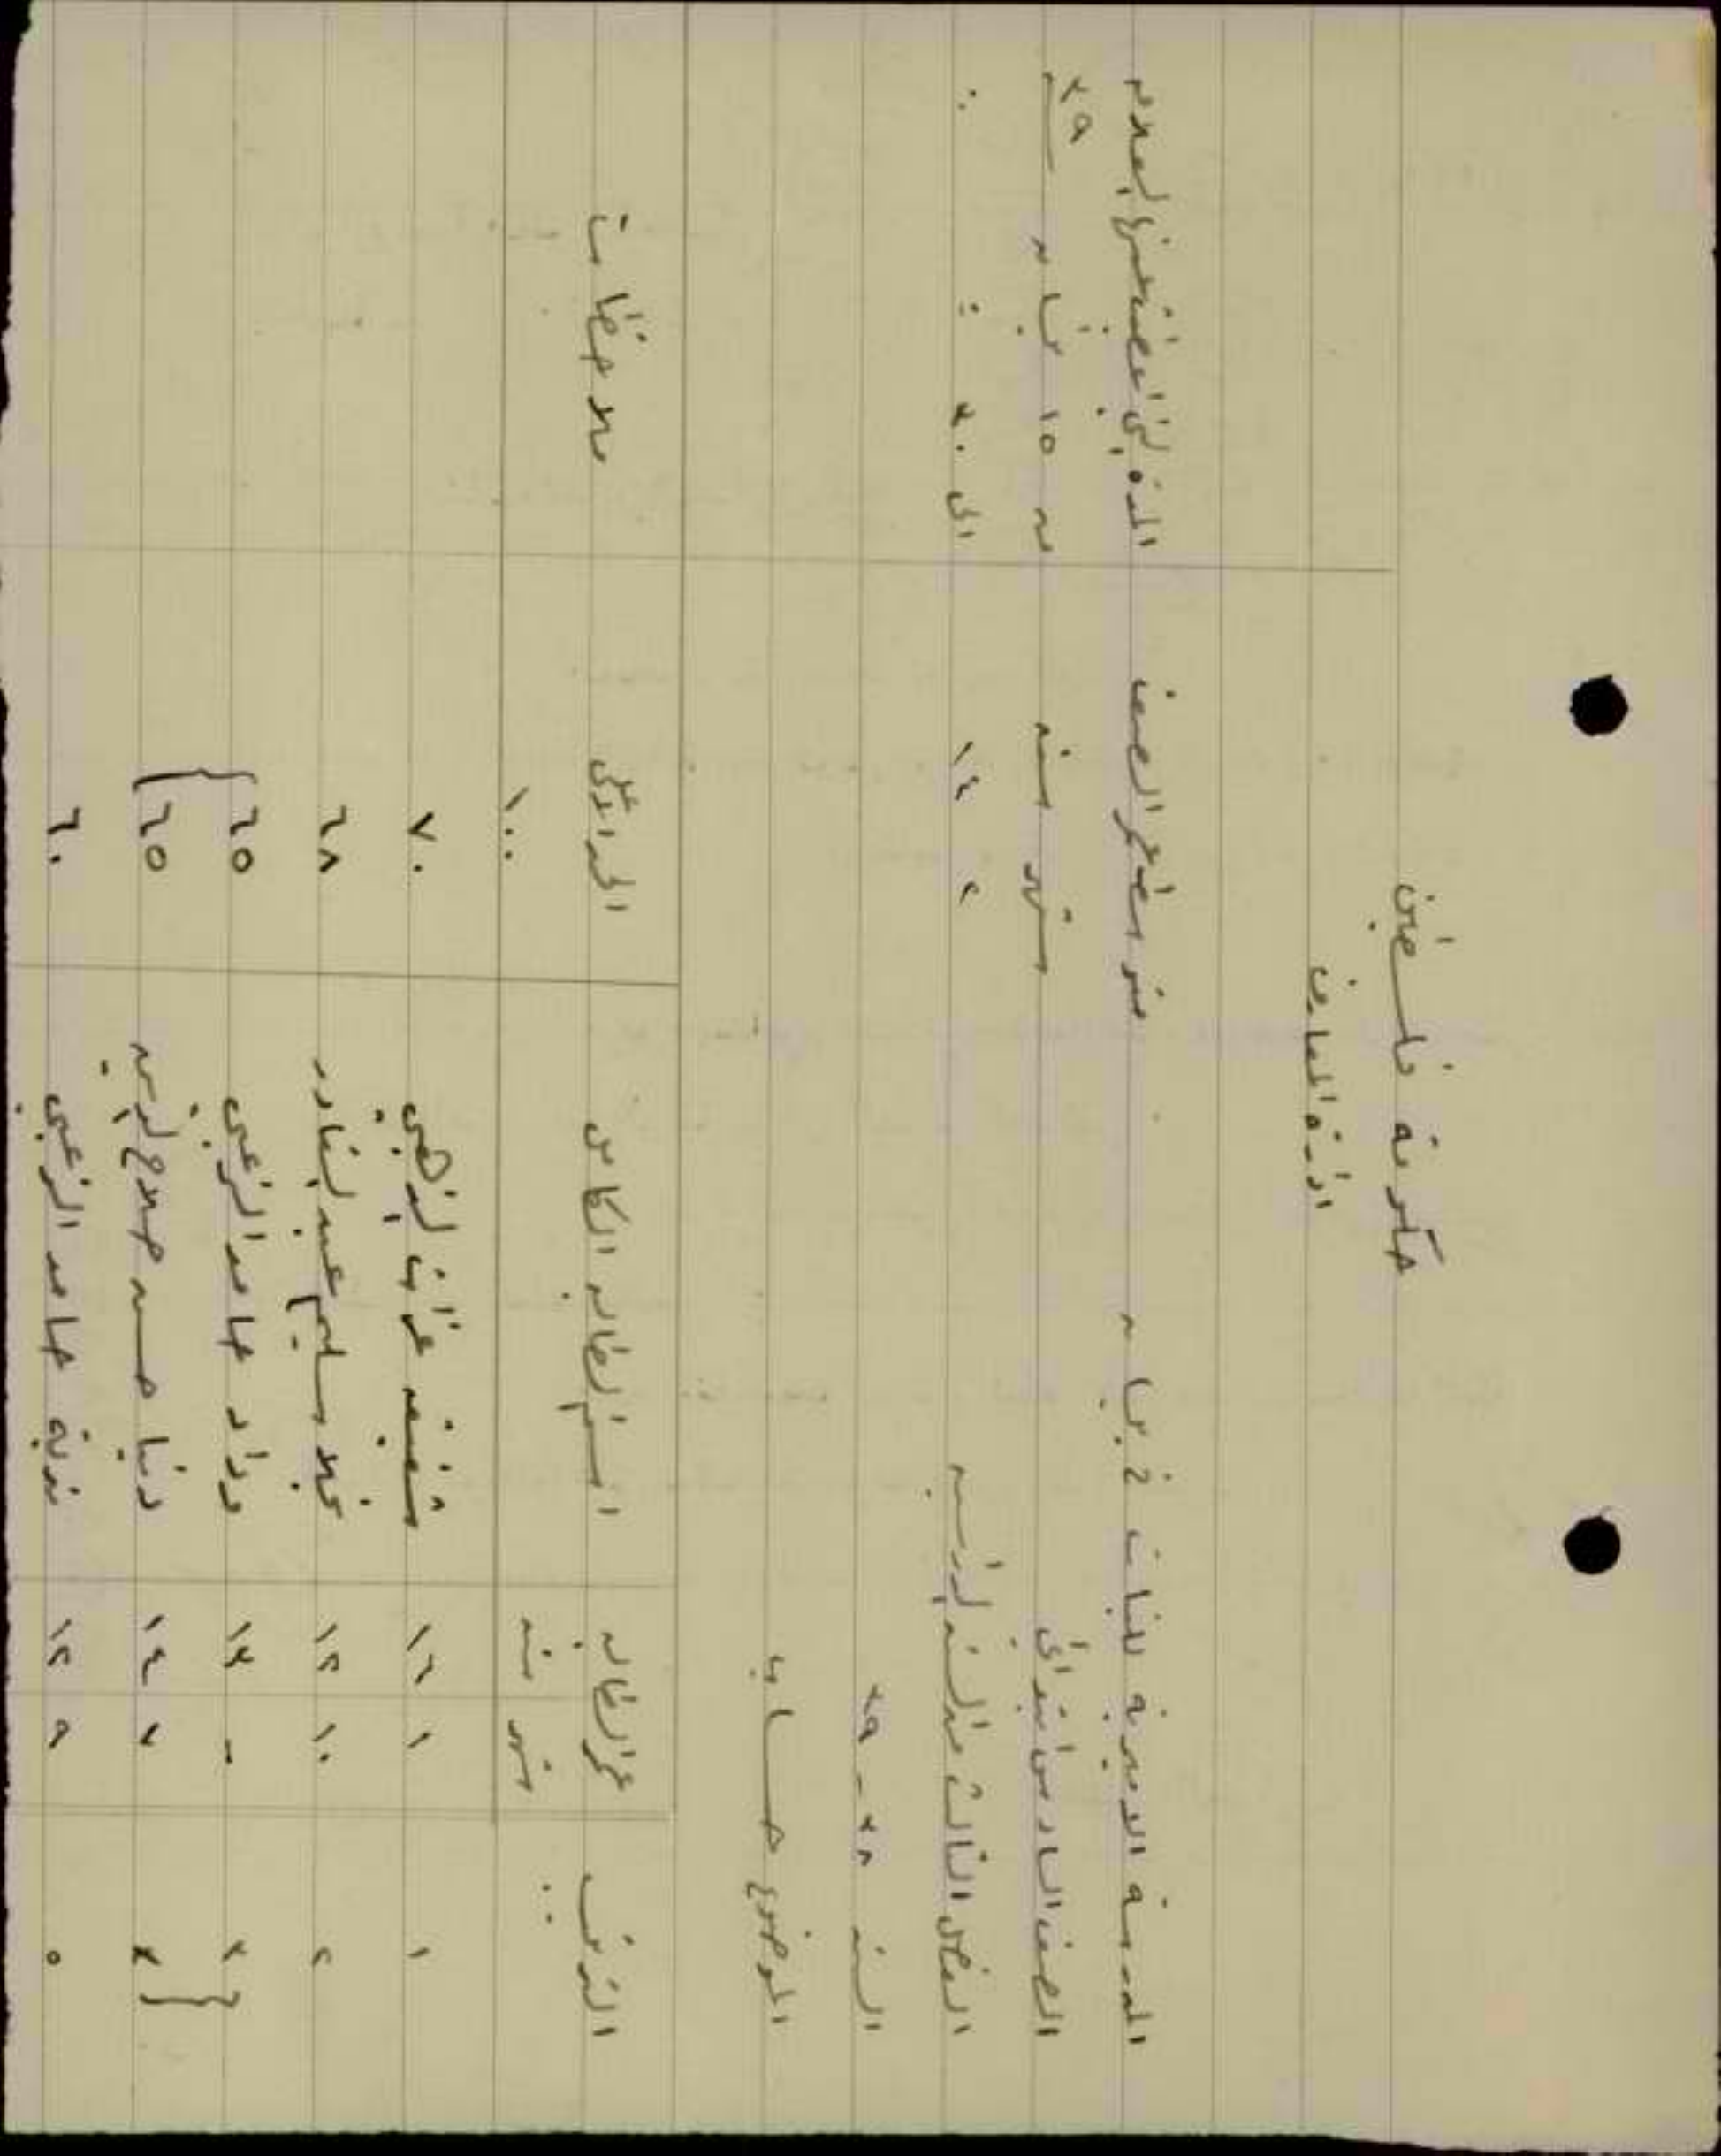 حكومة فلسطين
ادارة المعارف
المدرسة الاميرية للبنات في بيسان متوسط عمر الصف المدة التي اعطيت عنها العلامة
الصف السادس ابتدائي شهر سنة من ١٥ نيسان سنة ٣٩
الفصل الثالث من السنة الدراسية ٢ ١٤ الى ٣٠ " "
السنة ٣٨ - ٣٩
الموضوع حساب
الترتيب عمر الطالب اسم الطالب الكامل الحد الاعلى ملاحظات
شهر سنة ١٠٠
١ ١ ١٦ شفيقه عزات الذهبي ٧٠
٢ ١٠ ١٢ نجلا سليم عبد القادر ٦٨
٣ - ١٣ وداد حامد الزعبي ٦٥
٣ ٧ ١٤ دنيا حسن صلاح الدين ٦٥
٥ ٩ ١٢ بدرية حامد الزعبي ٦٠